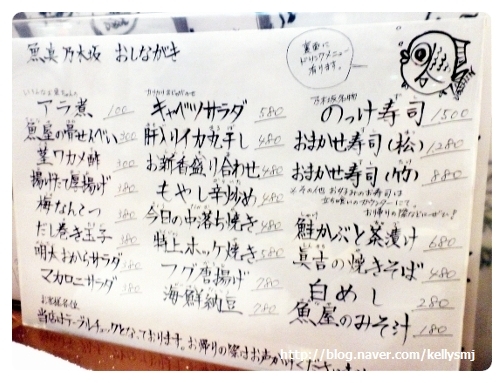 魚真乃木坂 おしながき
裏面に
ドリンクメニュー
有ります。
アラ煮 100
魚屋の骨せんべい 300
茎ワカメ酢 300
揚げたて厚揚げ 380
梅なんこつ 380
だし巻き玉子 380
明太おからサラダ 380
マカロニサラダ 380
キャベツサラダ 580
肝入りイカ丸干し 480
お新香盛り合わせ 480
もやし辛炒め 480
今日の中落ち焼き 480
特上ホッケ焼き 580
フグ唐揚げ 780
海鮮納豆 780
乃木坂名物
のっけ寿司 1500
おまかせ寿司(松) 1280
おまかせ寿司(竹) 880
※その他 お好みのお寿司は
立ち喰いカウンターにて。
お帰りの際などにぜひ!
鮭かぶと茶漬け 680
真吉の焼きそば 480
白めし 280
魚屋のみそ汁 180
お客様各位
当店はテーブルチェックとなっております。お帰りの際はお声がけくださいませ
http://blog.naver.com/kellysmj